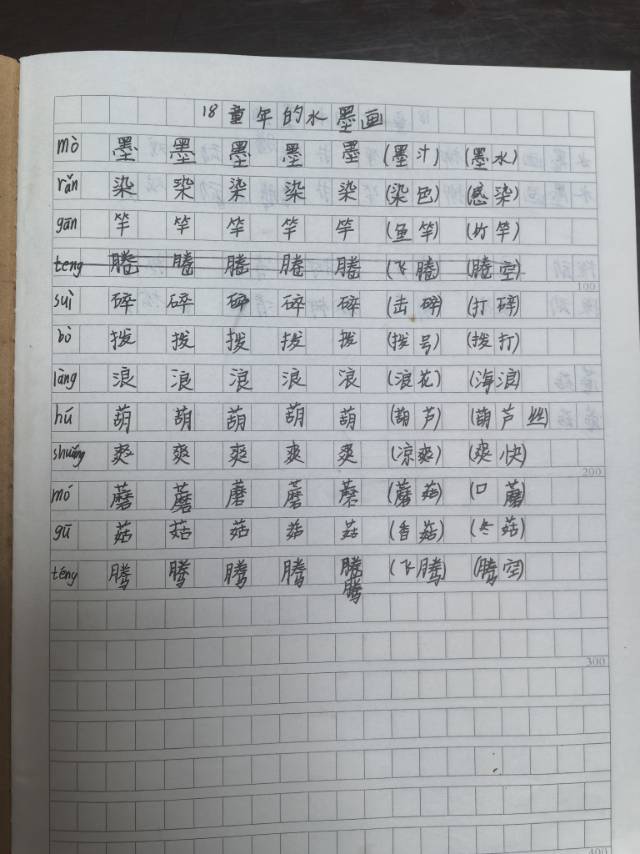 18 童年的水墨画
mò 墨 墨 墨 墨 墨 (墨汁) (墨水)
rǎn 染 染 染 染 染 (染色) (感染)
gān 竿 竿 竿 竿 竿 (鱼竿) (竹竿)
teng 腾 腾 腾 腾 腾 (飞腾) (腾空)
100
suì 碎 碎 碎 碎 碎 (击碎) (打碎)
bō 拨 拨 拨 拨 拨 (拨号) (拨打)
làng 浪 浪 浪 浪 浪 (浪花) (海浪)
hú 葫 葫 葫 葫 葫 (葫芦) (葫芦丝)
shuǎng 爽 爽 爽 爽 爽 (凉爽) (爽快)
200
mó 蘑 蘑 蘑 蘑 蘑 (蘑菇) (口蘑)
gū 菇 菇 菇 菇 菇 (香菇) (冬菇)
téng 腾 腾 腾 腾 腾 (飞腾) (腾空)
腾
300
400